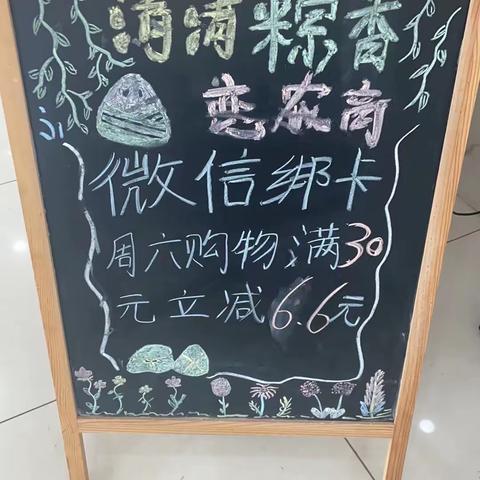 清清粽香
恋农商
微信绑卡
周六购物满30
元立减6.6元